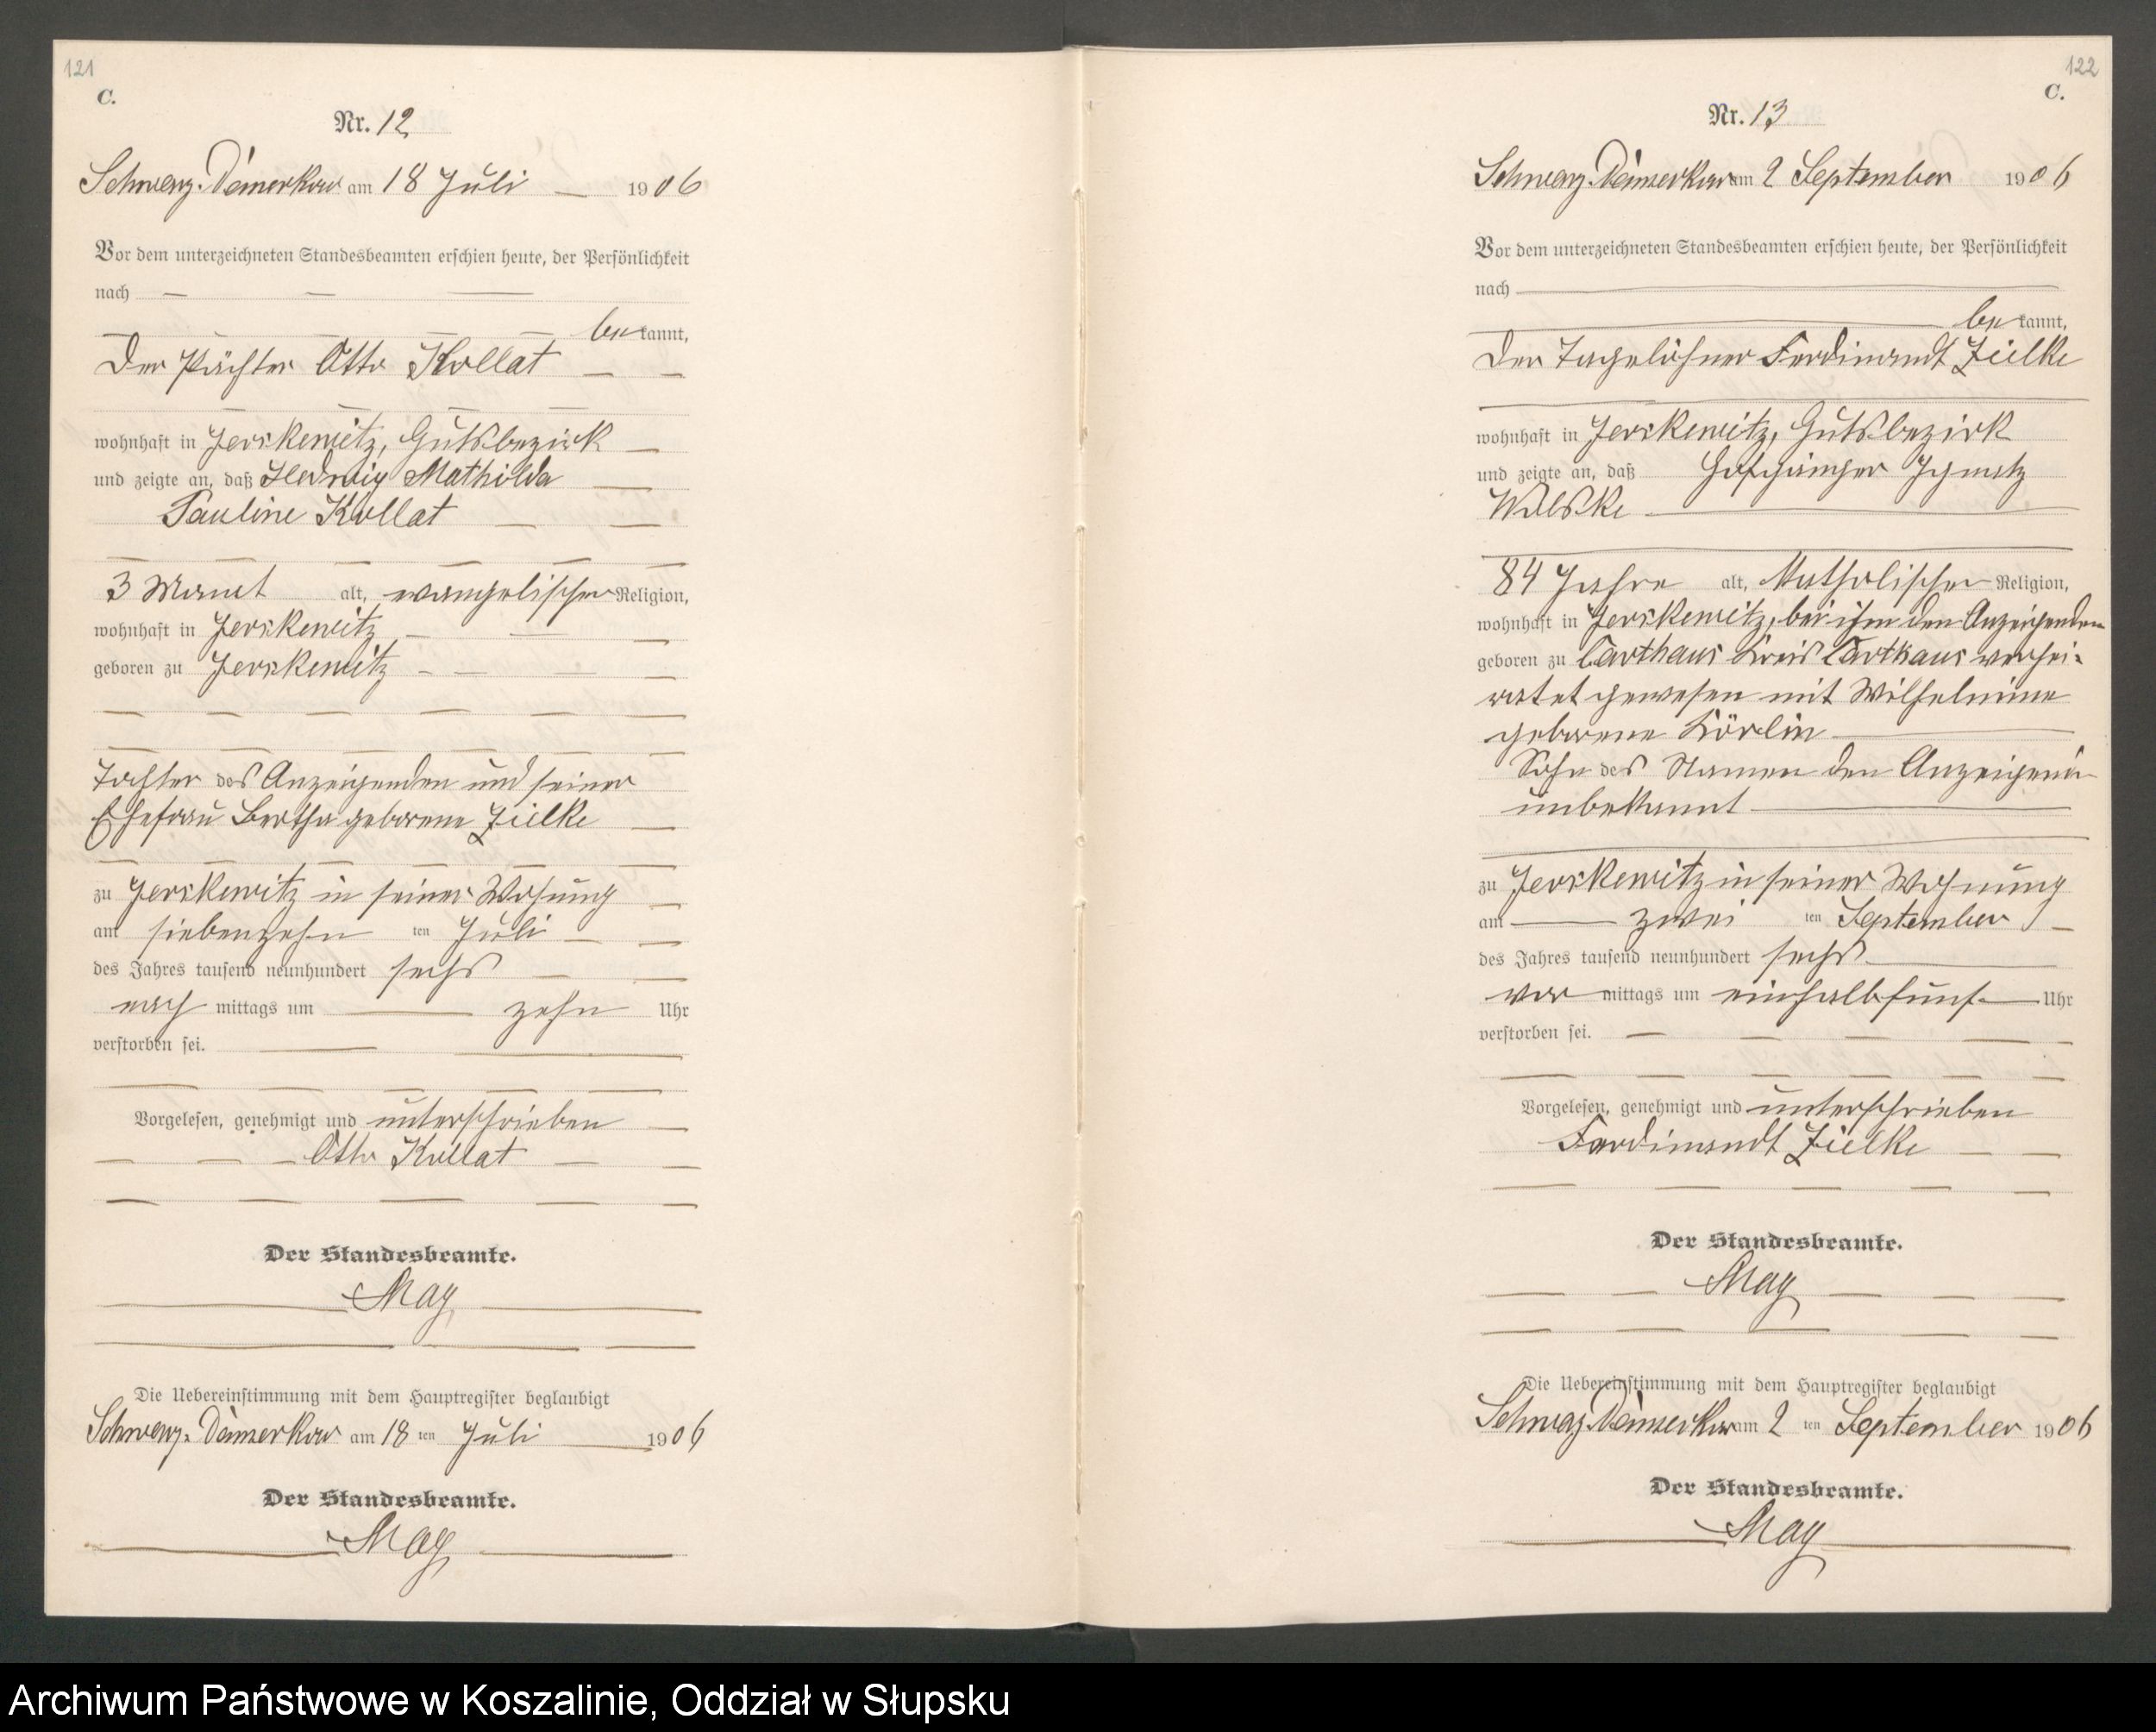 121
C.
Nr. 12
Schwarz-Damerkow am 18 Juli 1906
Vor dem unterzeichneten Standesbeamten erschien heute, der Persönlichkeit
nach
bekannt,
Der Pächter Otto Kollat
wohnhaft in Jerskewitz, Gutsbezirk
und zeigte an, daß Hedwig Mathilda
Pauline Kollat
3 Monat alt, evangelischer Religion,
wohnhaft in Jerskewitz
geboren zu Jerskewitz
Tochter des Anzeigenden und seiner
Ehefrau Bertha geborene Zielke
zu Jerskewitz in seiner Wohnung
am siebenzehn ten Juli
des Jahres tausend neunhundert sechs
nach mittags um zehn Uhr
verstorben sei.
Vorgelesen, genehmigt und unterschrieben
Otto Kollat
Der Standesbeamte.
May
Die Uebereinstimmung mit dem Hauptregister beglaubigt
Schwarz-Damerkow am 18 ten Juli 1906
Der Standesbeamte.
May
122
C.
Nr. 13
Schwarz-Damerkow am 2 September 1906
Vor dem unterzeichneten Standesbeamten erschien heute, der Persönlichkeit
nach
bekannt,
Der Tagelöhner Ferdinandt Zielke
wohnhaft in Jerskewitz, Gutsbezirk
und zeigte an, daß Hofgänger Ignatz
Wolske
84 Jahre alt, Katholischer Religion,
wohnhaft in Jerskewitz, bei ihm den Anzeigenden
geboren zu Carthaus Kreis Carthaus verhei-
ratet gewesen mit Wilhelmine
geborene Körlin
Sohn des Namen den Anzeigend
unbekannt
zu Jerskewitz in seiner Wohnung
am zwei ten September
des Jahres tausend neunhundert sechs
vor mittags um einhalbfünf Uhr
verstorben sei.
Vorgelesen, genehmigt und unterschrieben
Ferdinandt Zielke
Der Standesbeamte.
May
Die Uebereinstimmung mit dem Hauptregister beglaubigt
Schwarz-Damerkow am 2 ten September 1906
Der Standesbeamte.
May
Archiwum Państwowe w Koszalinie, Oddział w Słupsku